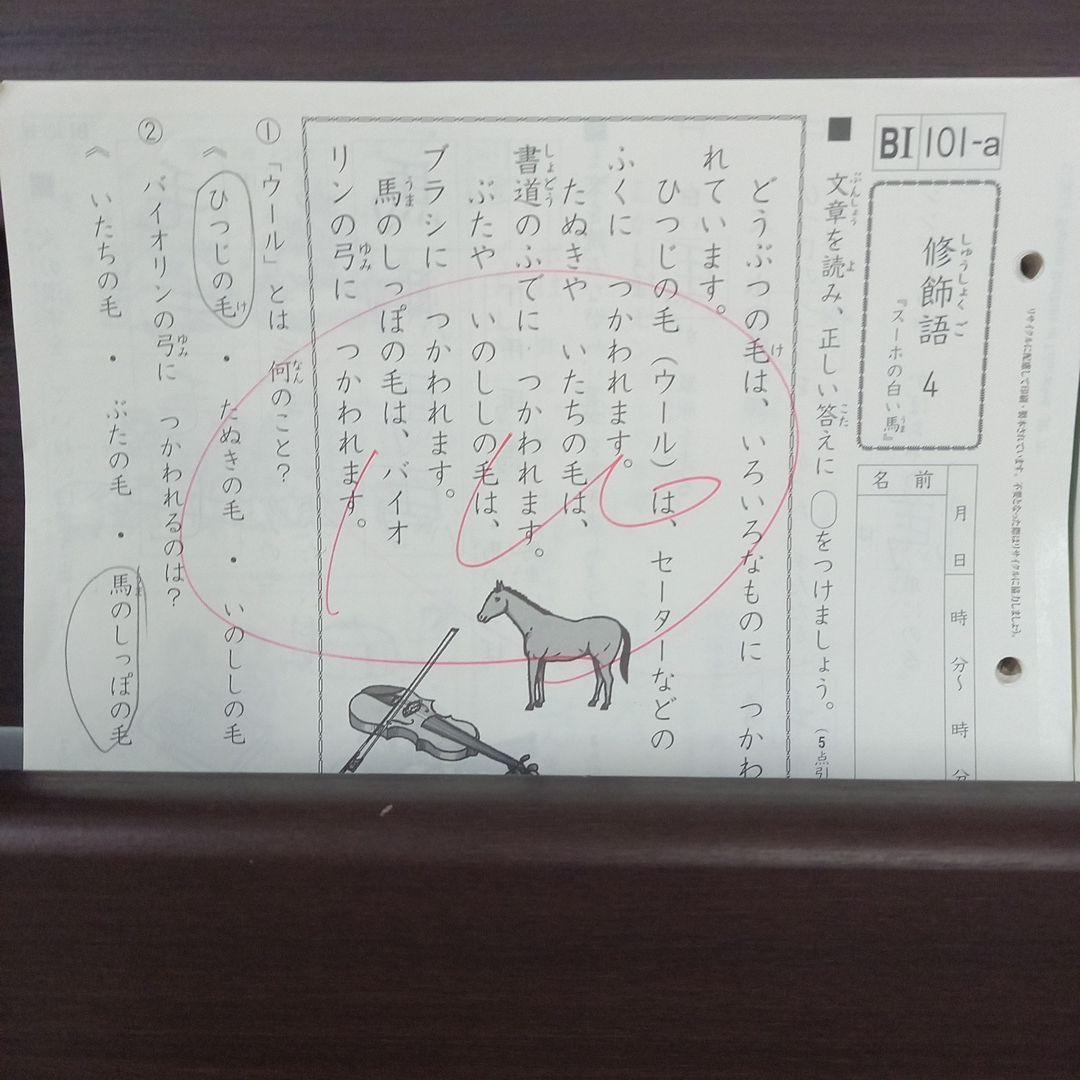 BI 101-a
修飾語 4
しゅうしょくご
『スーホの白い馬』
うま
月 日 時 分〜 時 分
名前
■ 文章を読み、正しい答えに ○をつけましょう。(5点引
ぶんしょう よ こた
どうぶつの毛は、いろいろなものに つかわ
け
れています。
ひつじの毛(ウール)は、セーターなどの
ふくに つかわれます。
たぬきや いたちの毛は、
書道のふでに つかわれます。
しょどう
ぶたや いのししの毛は、
ブラシに つかわれます。
馬のしっぽの毛は、バイオ
うま
リンの弓に つかわれます。
ゆみ
100
① 「ウール」とは 何のこと?
なん
《 ひつじの毛 ・ たぬきの毛 ・ いのししの毛
け
② バイオリンの弓に つかわれるのは?
ゆみ
《 いたちの毛 ・ ぶたの毛 ・ 馬のしっぽの毛